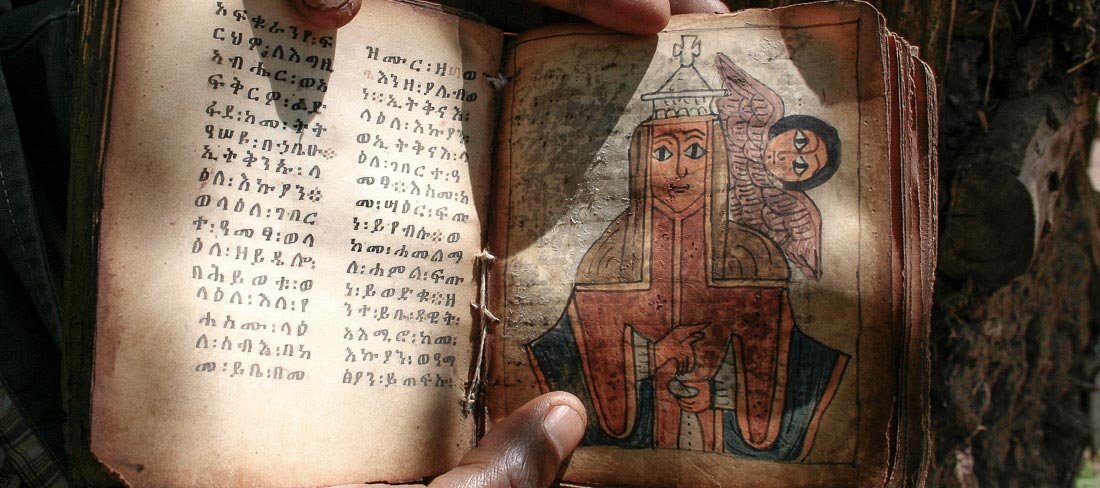 አፍቁራንየ፡ፍ
ርህዎ፡ለእግዚ
አብሔር፡ወአ
ፍቅርዎ፡
ፋደ፡ከመ፡ትት
ዓሠዩ፡በኀቤሁ።
ኢትቅንኡ፡ላ
ዕለ፡እኩያን።
ወላዕለ፡ገበር
ተ፡ዓመፃ፡ወላ
ዕለ፡ዘይዴሎ፡
በሕይወቱ፡ወ
ላዕለ፡እለ፡የ
ሐስሙ፡ላዕ
ለ፡ሰብእ፡በከ
መ፡ይቤ፡በመ
ዝሙር፡ዘ፴ወ
፮እንዘ፡ያሌብወ
ነ።ኢትቅናእ፡
ላዕለ፡እኩያን
ወኢትቅናእ፡ላ
ዕለ፡ገበርተ፡ዓ
መፃ።እስመ፡ከ
መ፡ሣዕር፡ፍጡ
ነ፡ይየብሱ።ወ
ከመ፡ሐመልማ
ለ፡ሐምል፡ፍጡ
ነ፡ይወድቁ።ዘ
ንተ፡ይቤ፡ዳዊት፡
አእሚሮ፡ከመ፡
እኩያን፡ወዓማ
ፅያን፡ይጠፍኡ፡